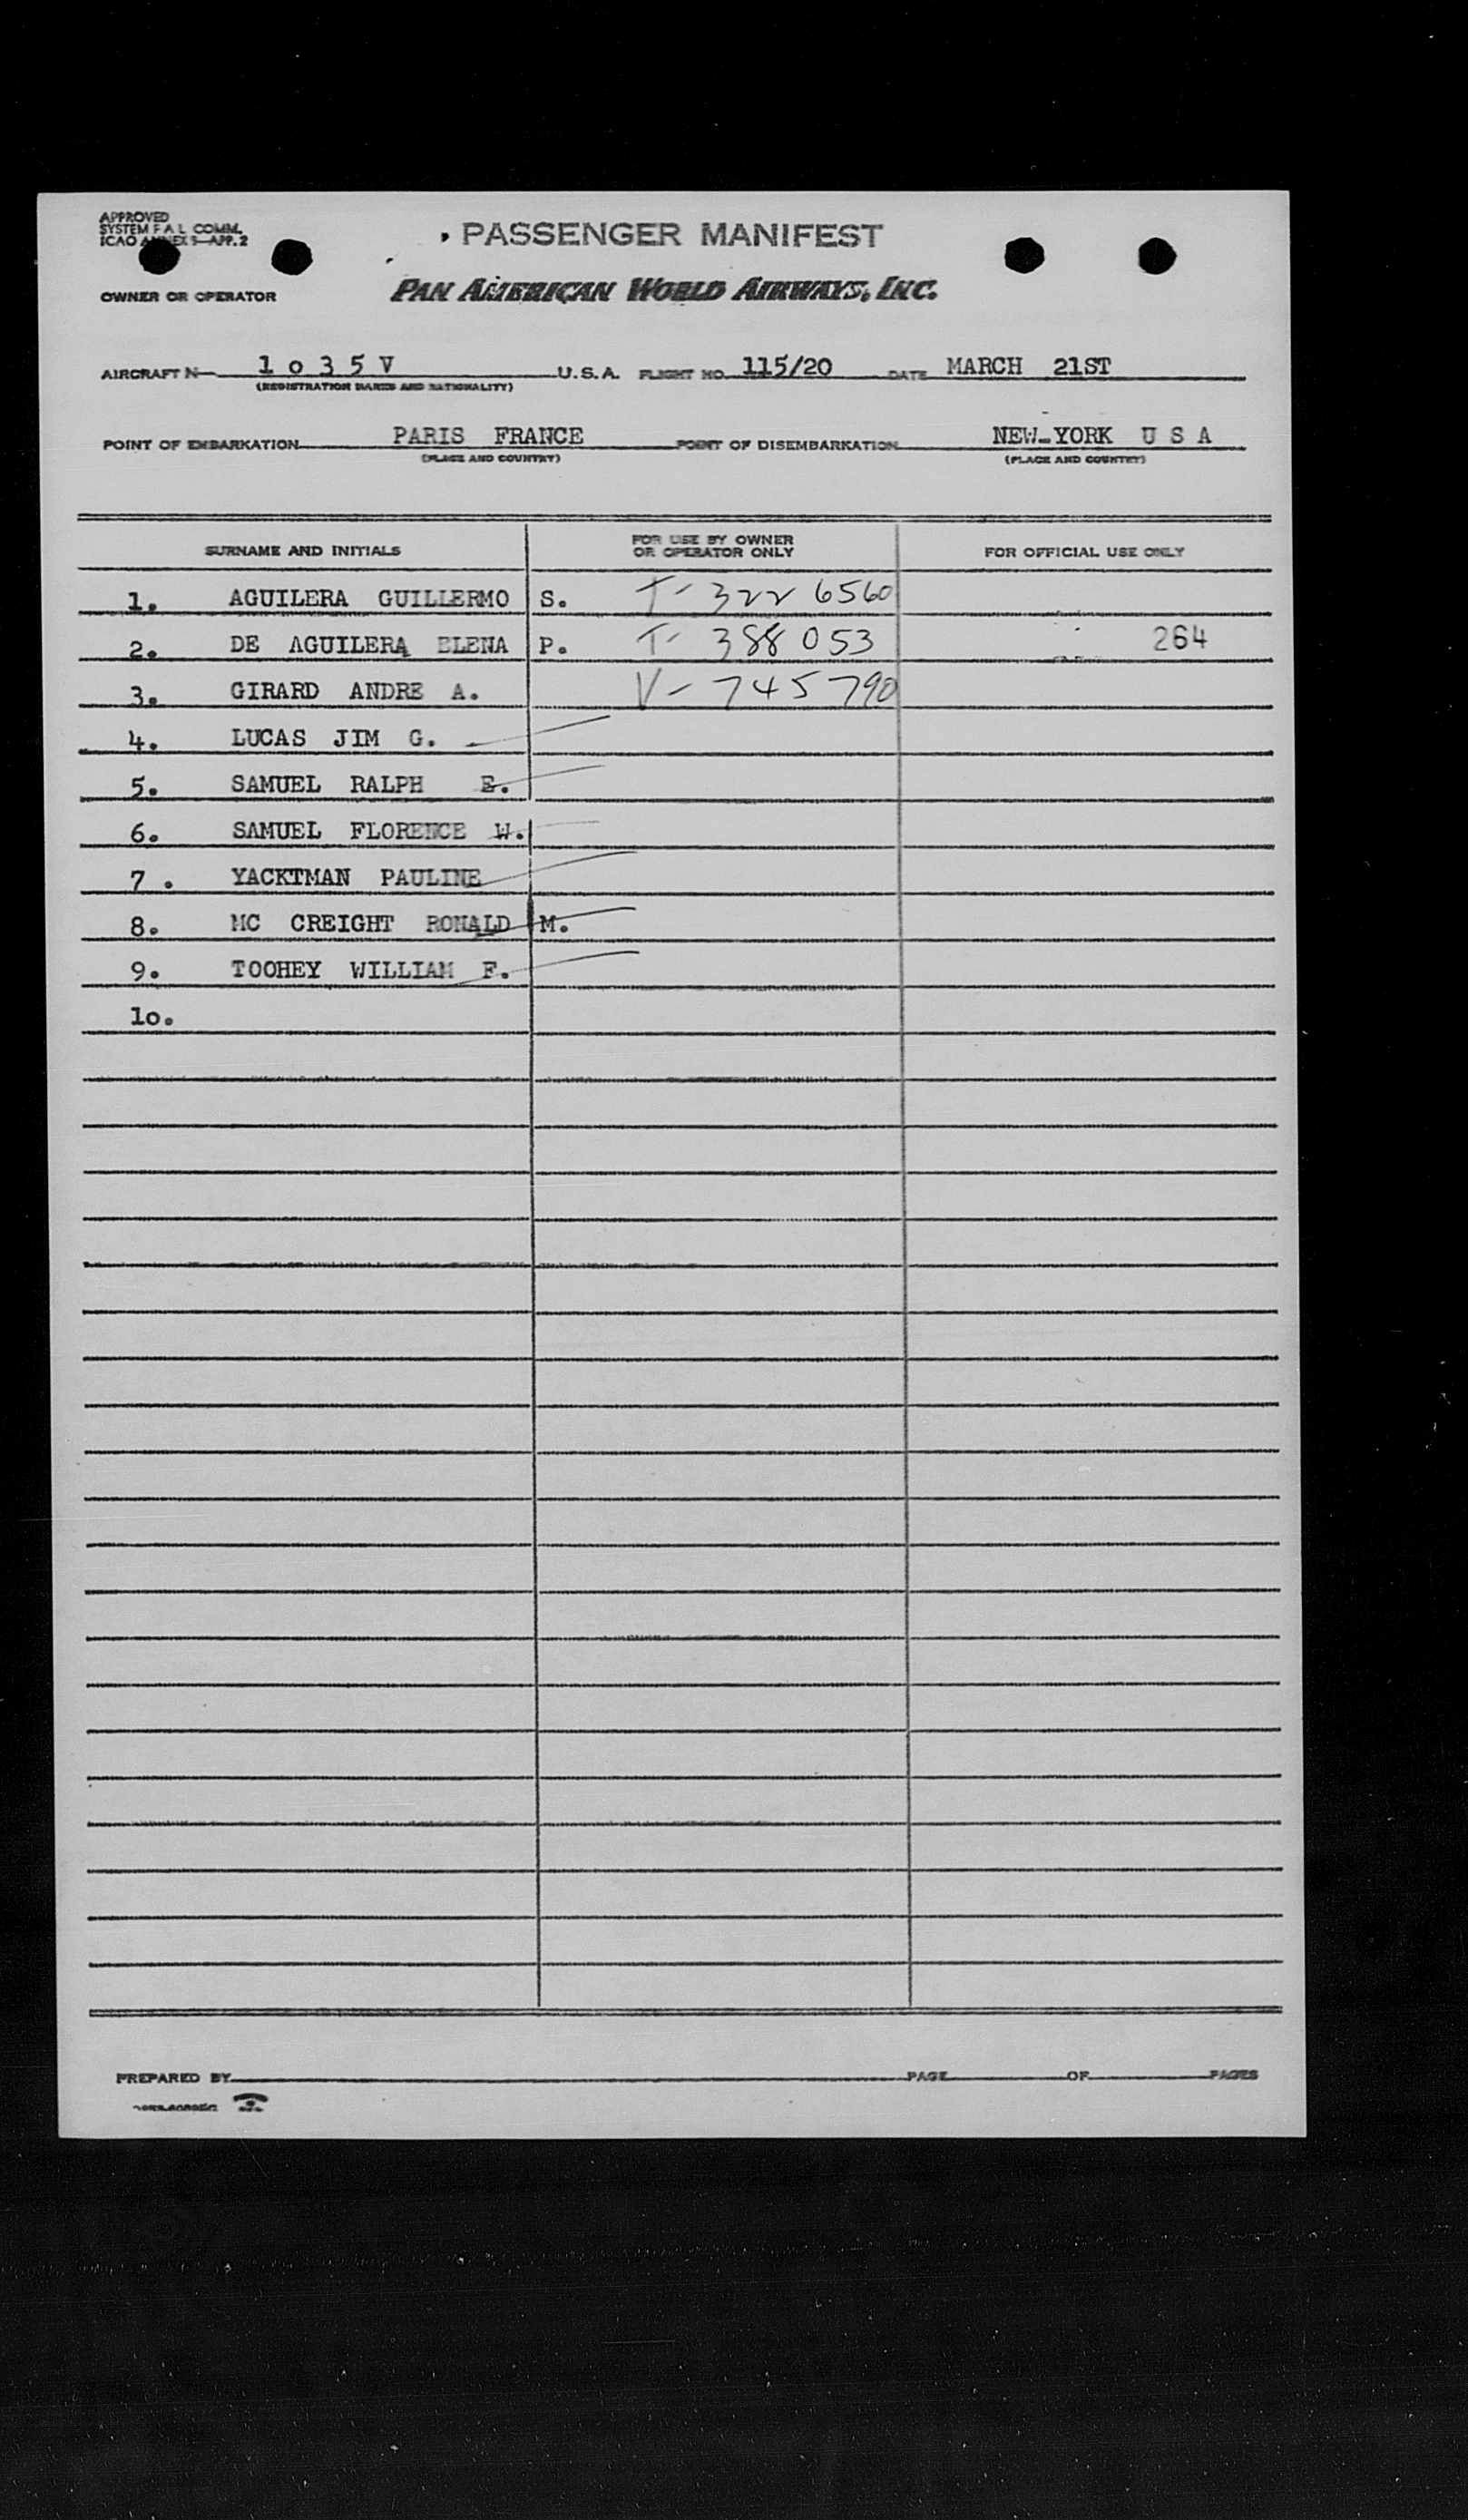 APPROVED
SYSTEM F A L COMM.
ICAO ANNEX 9—APP. 2
PASSENGER MANIFEST
OWNER OR OPERATOR PAN AMERICAN WORLD AIRWAYS, INC.
AIRCRAFT N— 1 o 3 5 V U.S.A. FLIGHT NO. 115/20 DATE MARCH 21ST
(REGISTRATION MARKS AND NATIONALITY)
POINT OF EMBARKATION PARIS FRANCE POINT OF DISEMBARKATION NEW-YORK U S A
(PLACE AND COUNTRY) (PLACE AND COUNTRY)
SURNAME AND INITIALS FOR USE BY OWNER OR OPERATOR ONLY FOR OFFICIAL USE ONLY
1. AGUILERA GUILLERMO S. T- 322 6560
2. DE AGUILERA ELENA P. T- 388 053 264
3. GIRARD ANDRE A. V- 745 790
4. LUCAS JIM G.
5. SAMUEL RALPH E.
6. SAMUEL FLORENCE W.
7 . YACKTMAN PAULINE
8. MC CREIGHT RONALD M.
9. TOOHEY WILLIAM F.
1o.
PREPARED BY PAGE OF PAGES